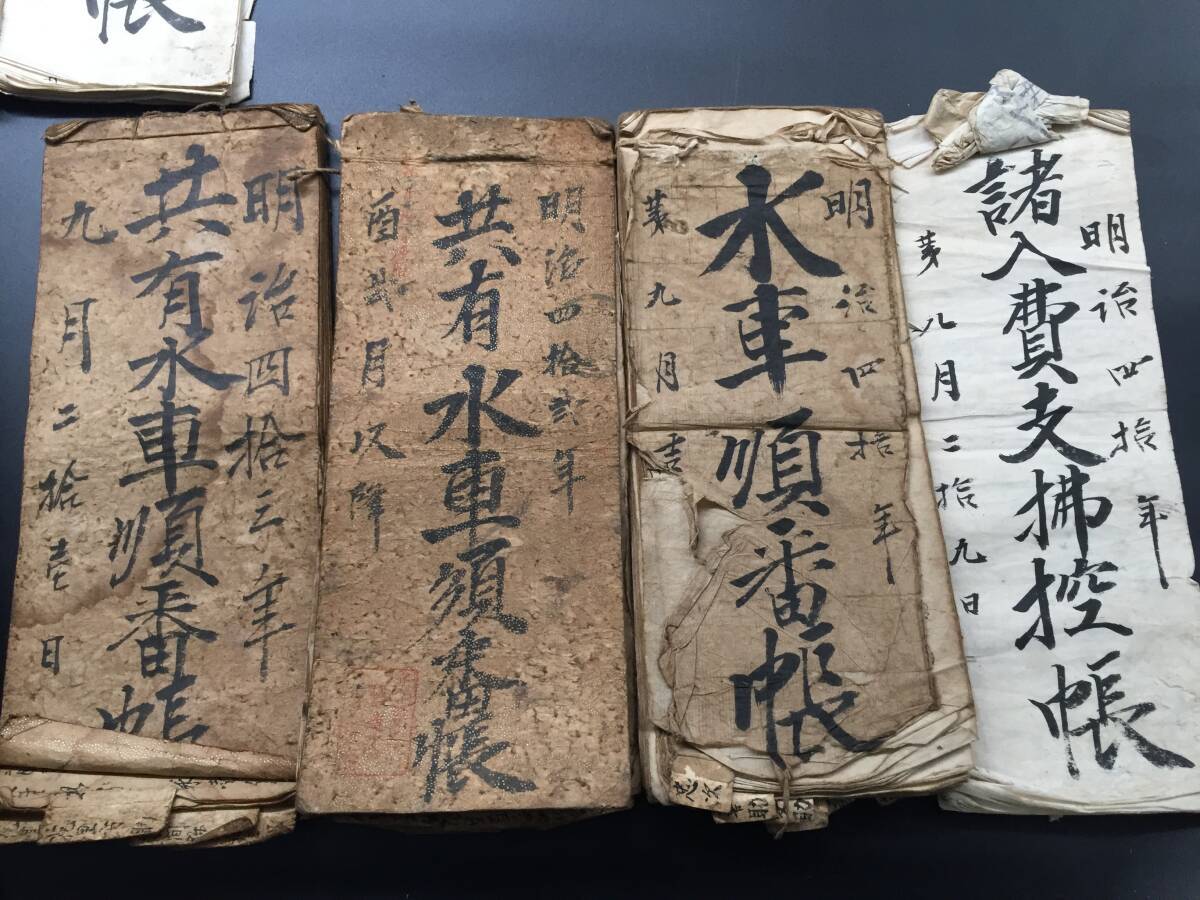 帳
諸入費支拂控帳
明治四拾年
第八月二拾九日
明治四拾年
水車順番帳
第九月吉
明治四拾弐年
共有水車順番帳
酉弐月以降
明治四拾三年
共有水車順番帳
九月二拾壱日